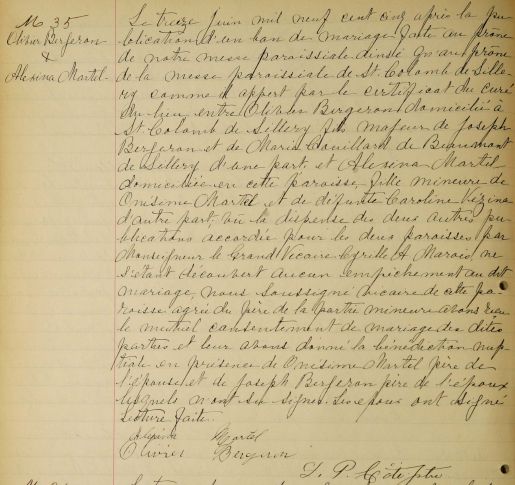 M 35
Olivier Bergeron
&
Alexina Martel
Le treize juin mil neuf cent cinq après la pu-
blication d'un ban de mariage faite au prône
de notre messe paroissiale ainsi qu'au prône
de la messe paroissiale de St. Colomb de Sille-
ry comme il appert par le certificat du curé
du lieu entre Olivier Bergeron domicilié à
St Colomb de Sillery fils majeur de Joseph
Bergeron et de Marie Couillard de Beaumont
de Sillery d'une part, et Alexina Martel
domiciliée en cette paroisse, fille mineure de
Onésime Martel et de défunte Caroline Vézina
d'autre part, vu la dispense des deux autres pu-
blications accordée pour les deux paroisses par
Monseigneur le Grand Vicaire Cyrille A Marois, ne
s'étant découvert aucun empêchement au dit
mariage, nous soussigné vicaire de cette pa-
roisse agréé du père de la partie mineure avons reçu
le mutuel consentement de mariage des dites
parties et leur avons donné la bénédiction nup-
tiale en présence de Onésime Martel père de
l'épouse et de Joseph Bergeron père de l'époux
lesquels n'ont su signer. Les époux ont signé
lecture faite.
Alexina Martel
Olivier Bergeron